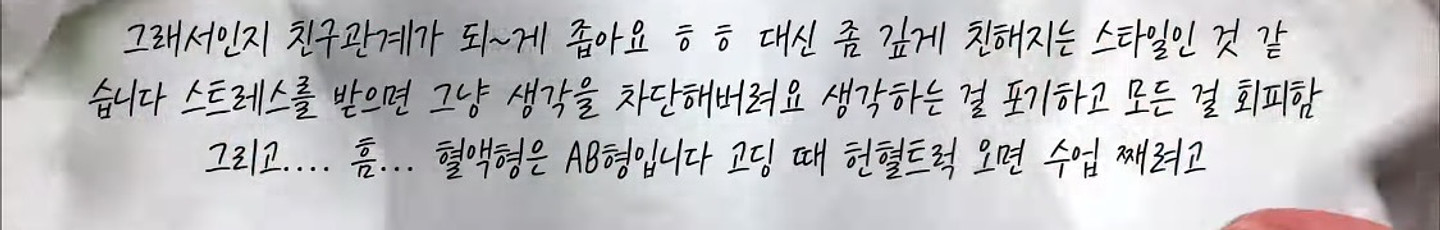 그래서인지 친구관계가 되~게 좁아요 ㅎㅎ 대신 좀 깊게 친해지는 스타일인 것 같
습니다 스트레스를 받으면 그냥 생각을 차단해버려요 생각하는 걸 포기하고 모든 걸 회피함
그리고.... 흠... 혈액형은 AB형입니다 고딩 때 헌혈트럭 오면 수업 째려고